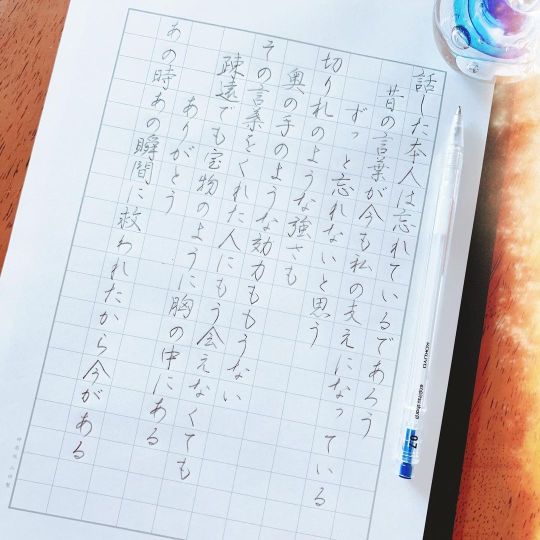 話した本人は忘れているであろう
昔の言葉が今も私の支えになっている
ずっと忘れないと思う
切りれのような強さも
奥の手のような効力ももうない
その言葉をくれた人にもう会えなくても
疎遠でも宝物のように胸の中にある
ありがとう
あの時あの瞬間に救われたから今がある
KOKUYO
0.7